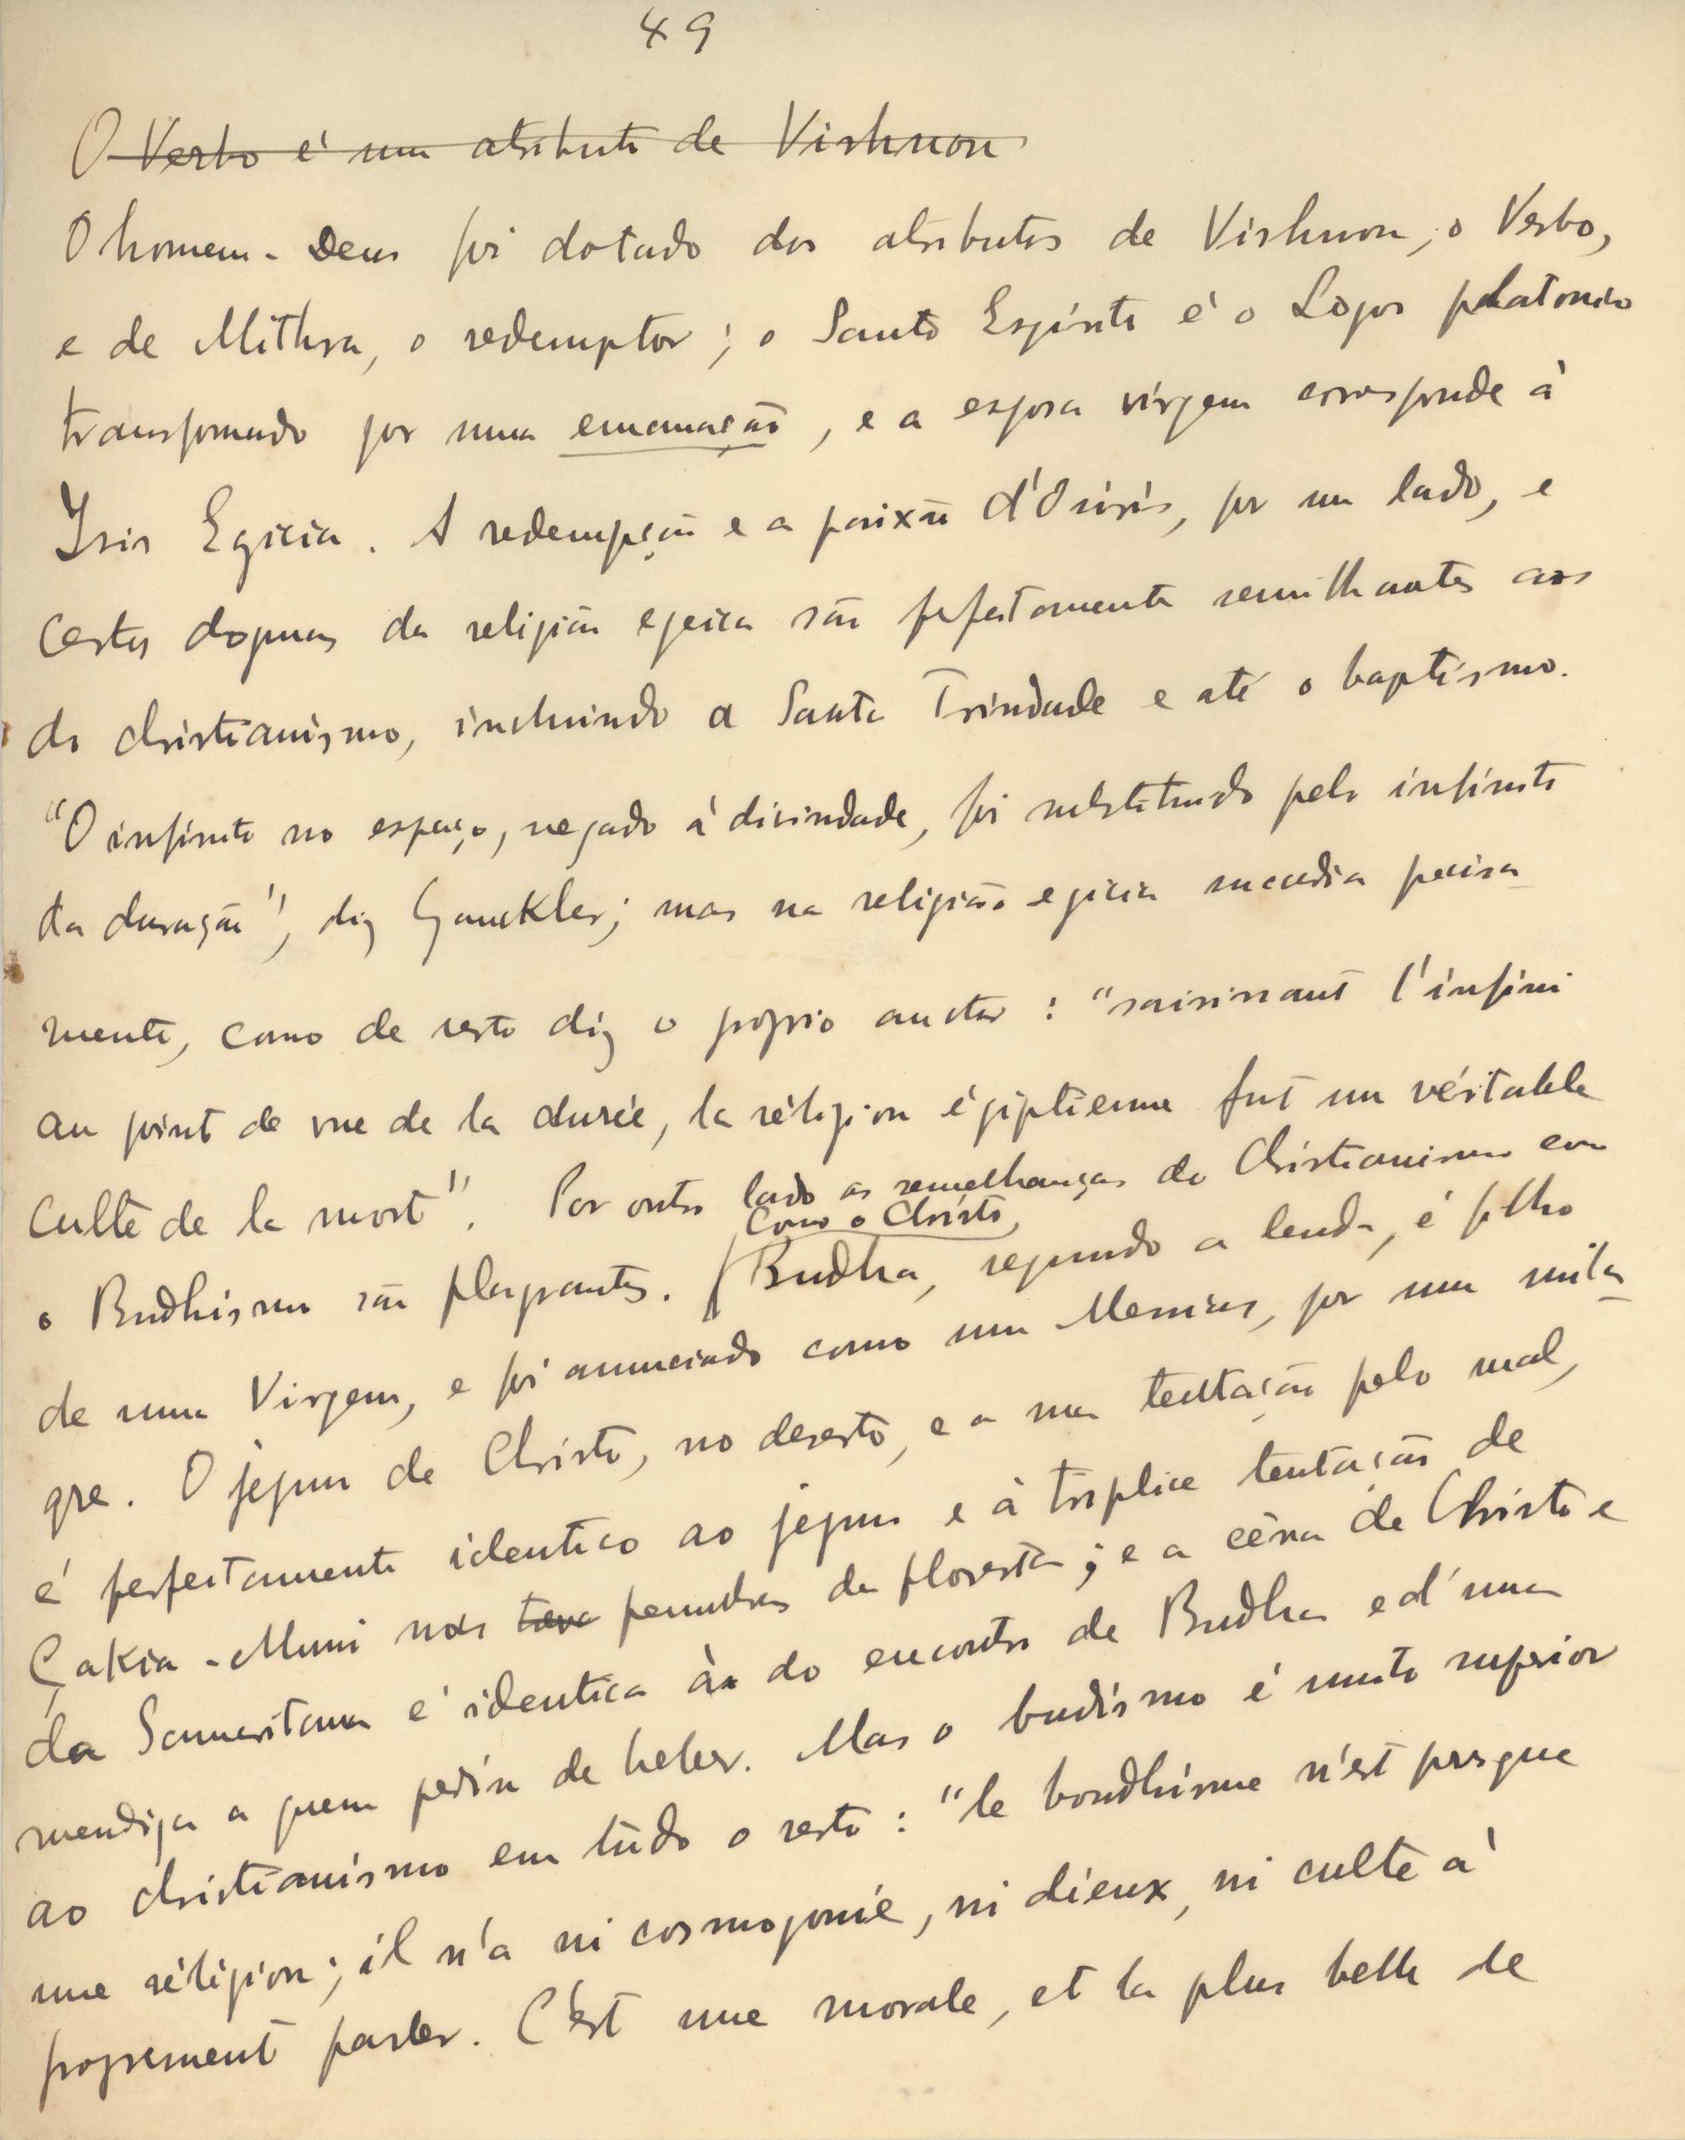 49
O Verbo é um atributo de Vishnou
O homem-Deus foi dotado dos atributos de Vishnou, o Verbo,
e de Mithra, o redemptor; o Santo Espirito é o Logos platonico
transformado por uma emanação, e a esposa virgem corresponde à
Isis Egicia. A redempção e a paixão d'Osiris, por um lado, e
certos dogmas da religião egicia são perfeitamente semilhantes aos
do christianismo, incluindo a Santa Trindade e até o baptismo.
"O infinito no espaço, negado á divindade, foi substituido pelo infinito
da duração", diz Gauckler; mas na religião egicia sucedia precisa-
mente, como de resto diz o proprio auctor: "saisissant l'infini
au point de vue de la durée, la réligion égiptienne fut un véritable
culte de la mort". Por outro lado as semelhanças do Christianismo com
Como o Christo,
o Budhismo são flagrantes. Budha, segundo a lenda, é filho
de uma Virgem, e foi anunciado como um Messias, por um mila-
gre. O jejum de Christo, no deserto, e a sua tentação pelo mal,
é perfeitamente identico ao jejum e à triplice tentação de
Çakia-Muni nas teve penumbras da floresta; e a cêna de Christo e
da Samaritana é identica à do encontro de Budha e d'uma
mendiga a quem pediu de beber. Mas o budismo é muito superior
ao christianismo em tudo o resto: "le boudhisme n'est presque
une réligion; il n'a ni cosmogonie, ni dieux, ni culte à
proprement parler. C'est une morale, et la plus belle de